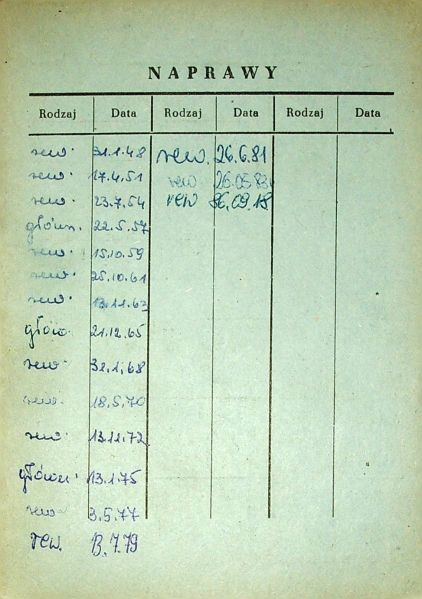 NAPRAWY
Rodzaj Data Rodzaj Data Rodzaj Data
rew. 31.1.48 rew. 26.6.81
rew. 17.4.51 rew 26.05.83
rew. 23.7.54 rew
główn. 22.5.57
rew. 15.10.59
rew. 25.10.61
rew. 13.11.63
główn. 21.12.65
rew. 31.1.68
rew. 18.5.70
rew. 13.12.72
główn. 13.1.75
rew. 3.5.77
rew. 13.7.79